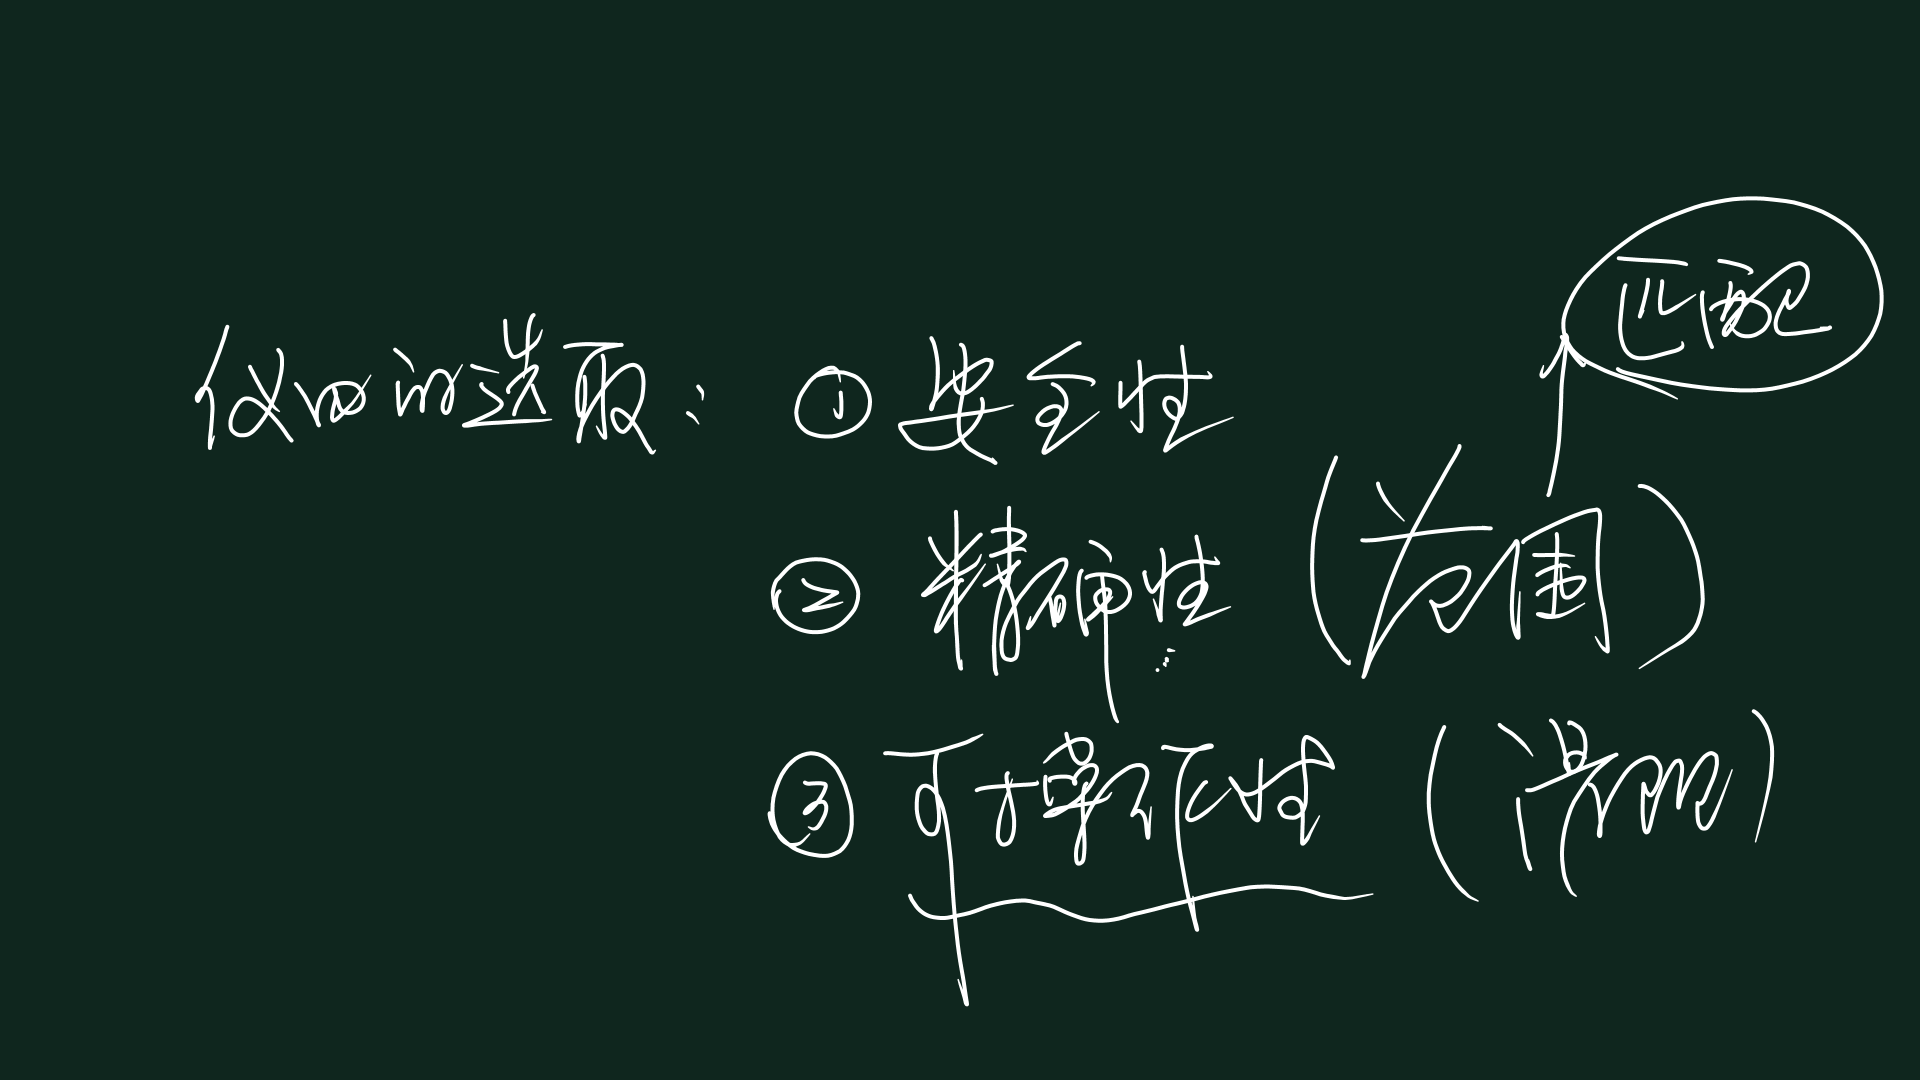 匹配
仪器的选取：① 安全性
② 精确性（范围）
③ 可操作性（误差）